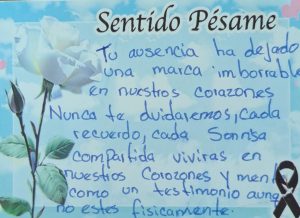 Sentido Pésame
Tu ausencia ha dejado
una marca imborrab
en nuestros corazones
Nunca te, dvidaremos, cada
recuerdo, cada Sonrisa
compartida viviras en
nuestros Corazones y men
como un testimonio aunq
no estes fisicamente